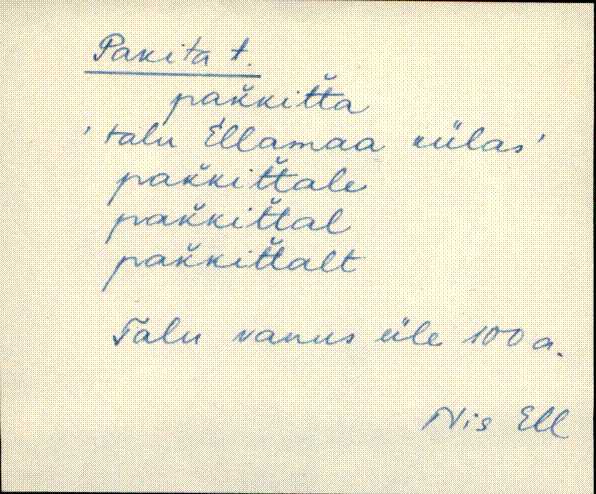 Pakita t.
pak̆kit̆ta
'talu Ellamaa külas'
pak̆kit̆tale
pak̆kit̆tal
pak̆kit̆talt
Talu vanus üle 100 a.
Nis Ell